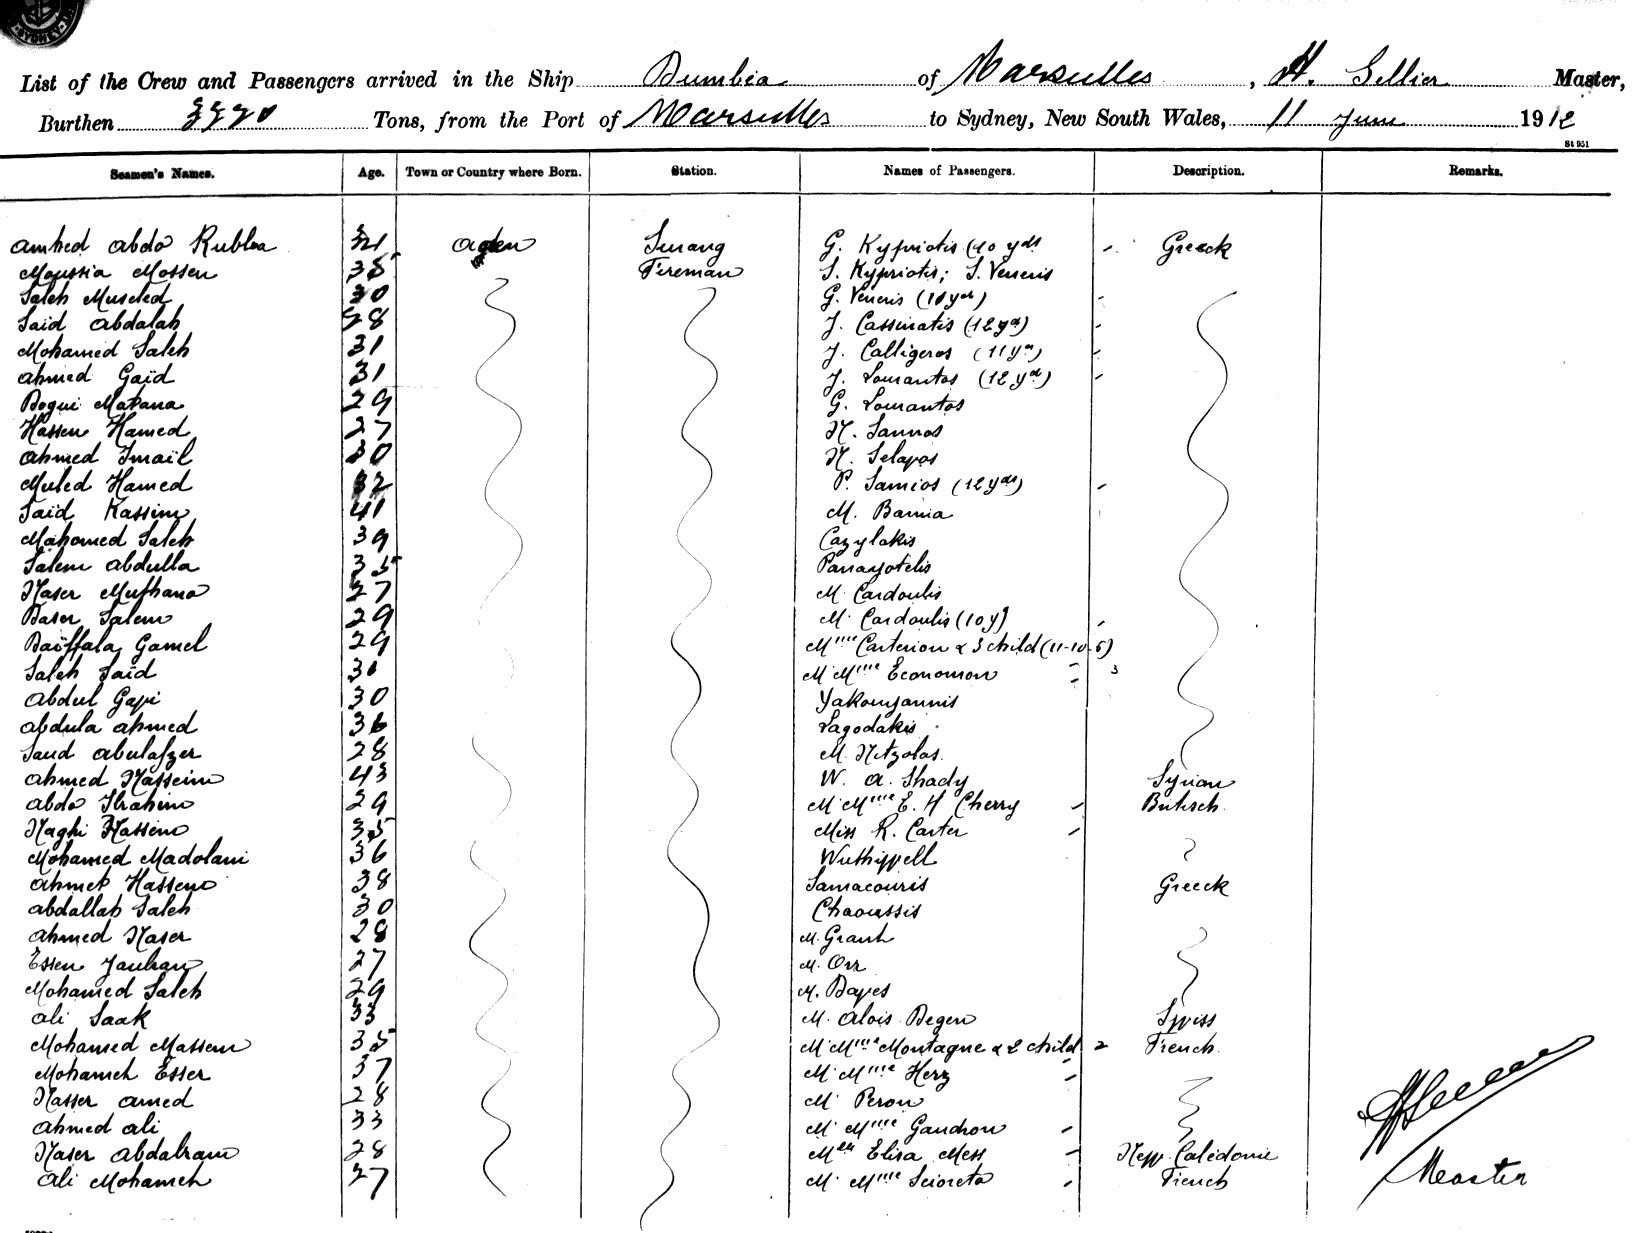 SYDNEY
List of the Crew and Passengers arrived in the Ship Dumbia of Marseilles, H. Sellier Master,
Burthen Tons, from the Port of Marseilles to Sydney, New South Wales, 11 June 1912
St 951
Seamen's Names. Age. Town or Country where Born. Station. Names of Passengers. Description. Remarks.
amhed abdo Rublea Aden Serang G. Kypriotis (10 yds Greeck
Moussia Mossen 35 Fireman S. Kypriotis; S. Veneris
Saleh Museled 30 G. Veneris (10 yds)
Said abdalah 28 J. Cassinatis (12 yds)
Mohamed Saleh 31 J. Calligeros (11 yrs)
ahmed Gaïd 31 J. Lourantos (12 yd)
Dogui Makana 29 G. Lourantos
Hassen Hamed 27 N. Sannos
ahmed Imaïl 30 N. Selapos
Muled Hamed 32 P. Samios (12 yds)
Saïd Kassim 41 M. Bamia
Mahomed Saleh 39 Cazylakis
Salem abdulla 35 Panayotelis
Naser Muthana 27 M. Cardoulis
Baser Salem 29 M. Cardoulis (10 y)
Daïffala Gamel 29 Mme Carterion & 3 child (11-10-5)
Saleh Saïd 30 M Mme Economou 3
abdul Gapi 30 Yakoumannis
abdula ahmed 36 Lagodakis
Saud abulafzer 28 M. Nitzolas.
ahmed Nasseim 43 W. A. Shady Syrian
abdo Ibrahim 29 M Mme E. H Cherry Britisch
Naghi Hassem 35 Miss R. Carter
Mohamed Madolani 36 Wuthippell
ahmet Hasseno 38 Samacouris Greeck
abdallah Saleh 30 Chaoussis
ahmed Naser 28 M. Granh
Essen 27 M. Orr
Mohamed Saleh 29 M. Bayes
ali Saak 33 M. Alois Degen Swiss
Mohamed Massem 35 M Mme Montagne & 2 child 2 French
Mohameh Esser 37 M Mme Herz
Nasser amed 28 M. Peron
ahmed ali 33 M Mme Gaudron
Naser abdalram 28 Mlle Elisa Mess New Calédonie
ali Mohameh 27 M. Mme Scioreto French
Master